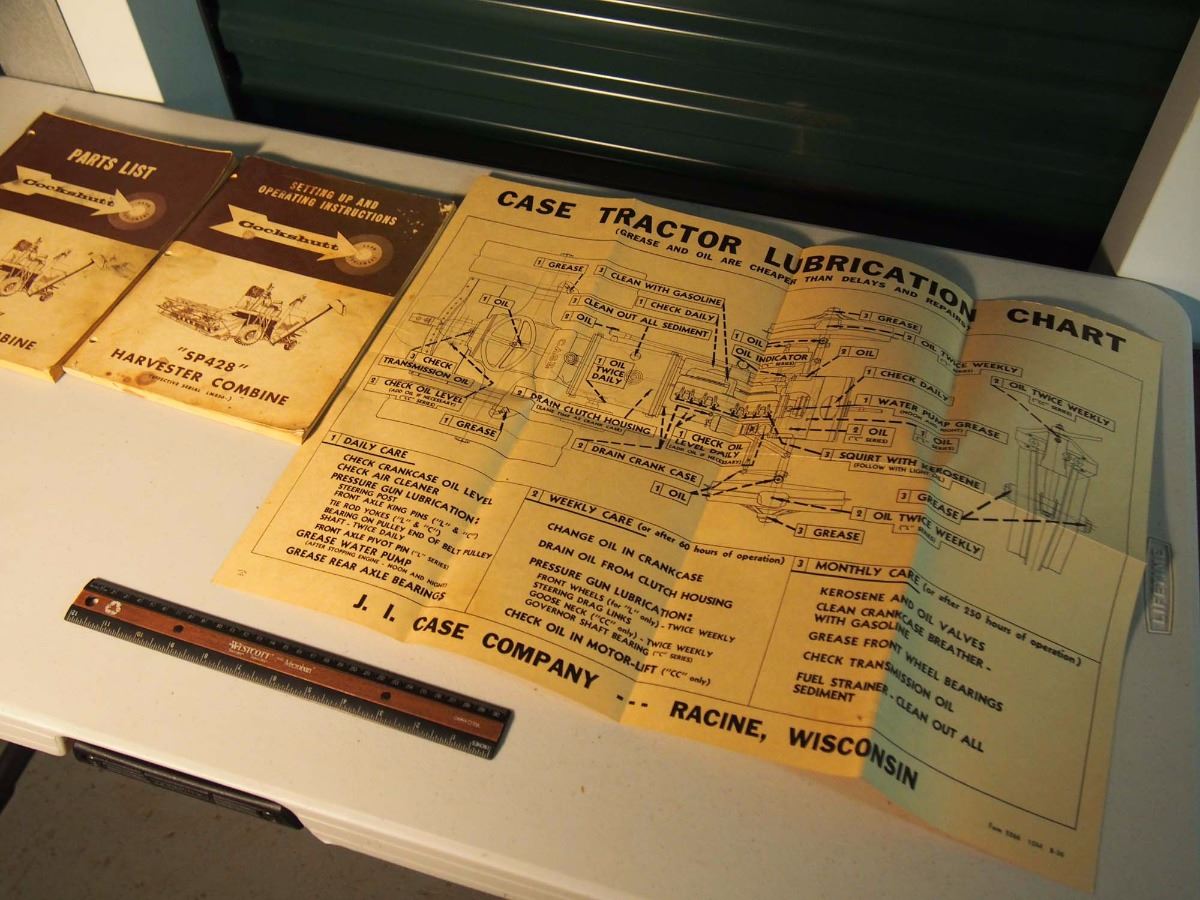 PARTS LIST
Cockshutt
BINE
SETTING UP AND
OPERATING INSTRUCTIONS
Cockshutt
"SP428"
HARVESTER COMBINE
CASE TRACTOR LUBRICATION CHART
(GREASE AND OIL ARE CHEAPER THAN DELAYS AND REPAIRS)
1 GREASE
3 CLEAN WITH GASOLINE
3 CLEAN OUT ALL SEDIMENT
1 CHECK DAILY
1 OIL
2 OIL
1 OIL
TWICE
DAILY
1 OIL
OIL INDICATOR
3 GREASE
2 OIL TWICE WEEKLY
("L" SERIES)
2 OIL
1 CHECK DAILY
2 OIL TWICE WEEKLY
("CC" SERIES)
3 CHECK
TRANSMISSION OIL
2 CHECK OIL LEVEL
(ADD OIL IF NECESSARY)
("CC" SERIES)
1 GREASE
2 DRAIN CLUTCH HOUSING
(SAME TIME AS CRANK CASE)
2 DRAIN CRANK CASE
1 CHECK OIL
LEVEL DAILY
(ADD OIL IF NECESSARY)
1 WATER PUMP GREASE
(NOON AND NIGHT)
2 OIL
("C" SERIES)
2 OIL
("L" SERIES)
3 SQUIRT WITH KEROSENE
(FOLLOW WITH LIGHT OIL)
1 OIL
3 GREASE
2 OIL TWICE WEEKLY
3 GREASE
1 DAILY CARE
CHECK CRANKCASE OIL LEVEL
CHECK AIR CLEANER
PRESSURE GUN LUBRICATION:
STEERING POST
FRONT AXLE KING PINS ("L" & "C")
TIE ROD YOKES ("L" & "C")
BEARING ON PULLEY END OF BELT PULLEY
SHAFT - TWICE DAILY
FRONT AXLE PIVOT PIN ("L" SERIES)
GREASE WATER PUMP
(AFTER STOPPING ENGINE - NOON AND NIGHT)
GREASE REAR AXLE BEARINGS
2 WEEKLY CARE (or after 60 hours of operation)
CHANGE OIL IN CRANKCASE
DRAIN OIL FROM CLUTCH HOUSING
PRESSURE GUN LUBRICATION:
FRONT WHEELS (for "L" only) - TWICE WEEKLY
STEERING DRAG LINKS
GOOSE NECK ("CC" only) - TWICE WEEKLY
GOVERNOR SHAFT BEARING ("C" SERIES)
CHECK OIL IN MOTOR-LIFT ("CC" only)
3 MONTHLY CARE (or after 250 hours of operation)
KEROSENE AND OIL VALVES
CLEAN CRANKCASE BREATHER -
WITH GASOLINE
GREASE FRONT WHEEL BEARINGS
CHECK TRANSMISSION OIL
FUEL STRAINER - CLEAN OUT ALL
SEDIMENT
J. I. CASE COMPANY --- RACINE, WISCONSIN
WESTCOTT
LIFETIME